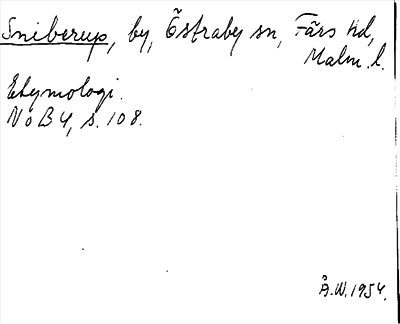 Sniberup, by, Östraby sn, Färs hd,
Malm. l.
Etymologi.
NoB 4, s. 108.
Å.W. 1954.